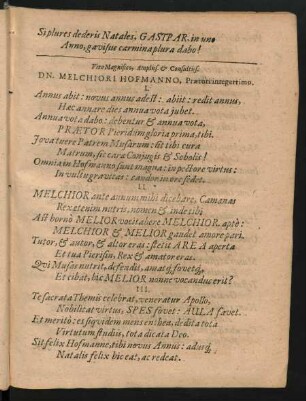 Si plures dederis Natales, GASPAR, in uno
Anno, gavisus carmina plura dabo!
Viro Magnifico, Amplis. & Consultiss.
DN. MELCHIORI HOFMANNO, Prætori integerrimo.
I.
Annus abit: novus annus adest: abiit: redit annus,
Hæc annare dies annua vota jubet.
Annua vota dabo: debentur & annua vota,
PRÆTOR Pieridum gloria prima, tibi.
Jova tuere Patrem Musarum: sit tibi cura
Matrum, sit cura Conjugis & Sobolis!
Omnia in Hofmanno sunt magna: in pectore virtus:
In vultu gravitas: candor in ore sedet.
MELCHIOR ante annum mihi dicebare, Camœnas
Rex etenim nutris, nomen & inde tibi
Ast bornô MELIOR vocitabere MELCHIOR aptè:
MELCHIOR & MELIOR gaudet amore pari.
Tutor, & autor, & altor eras: fletis AREA aperta
Et tua Pieriis, Rex & amator eras.
Qvi Musas nutrit, defendit, amatq́; fovetq́;
Et cibat, hic MELIOR nonne vocandus erit?
III.
Te sacrata Themis celebrat, veneratur Apollo,
Nobilitat virtus, SPES fovet: AULA favet.
Et meritò: es siqvidem mens enthea, dedita tota
Virtutum studiis, tota dicata Deo.
Sit felix Hofmanne, tibi novus Annus: adusq́;
Natalis felix hic eat, ac redeat.